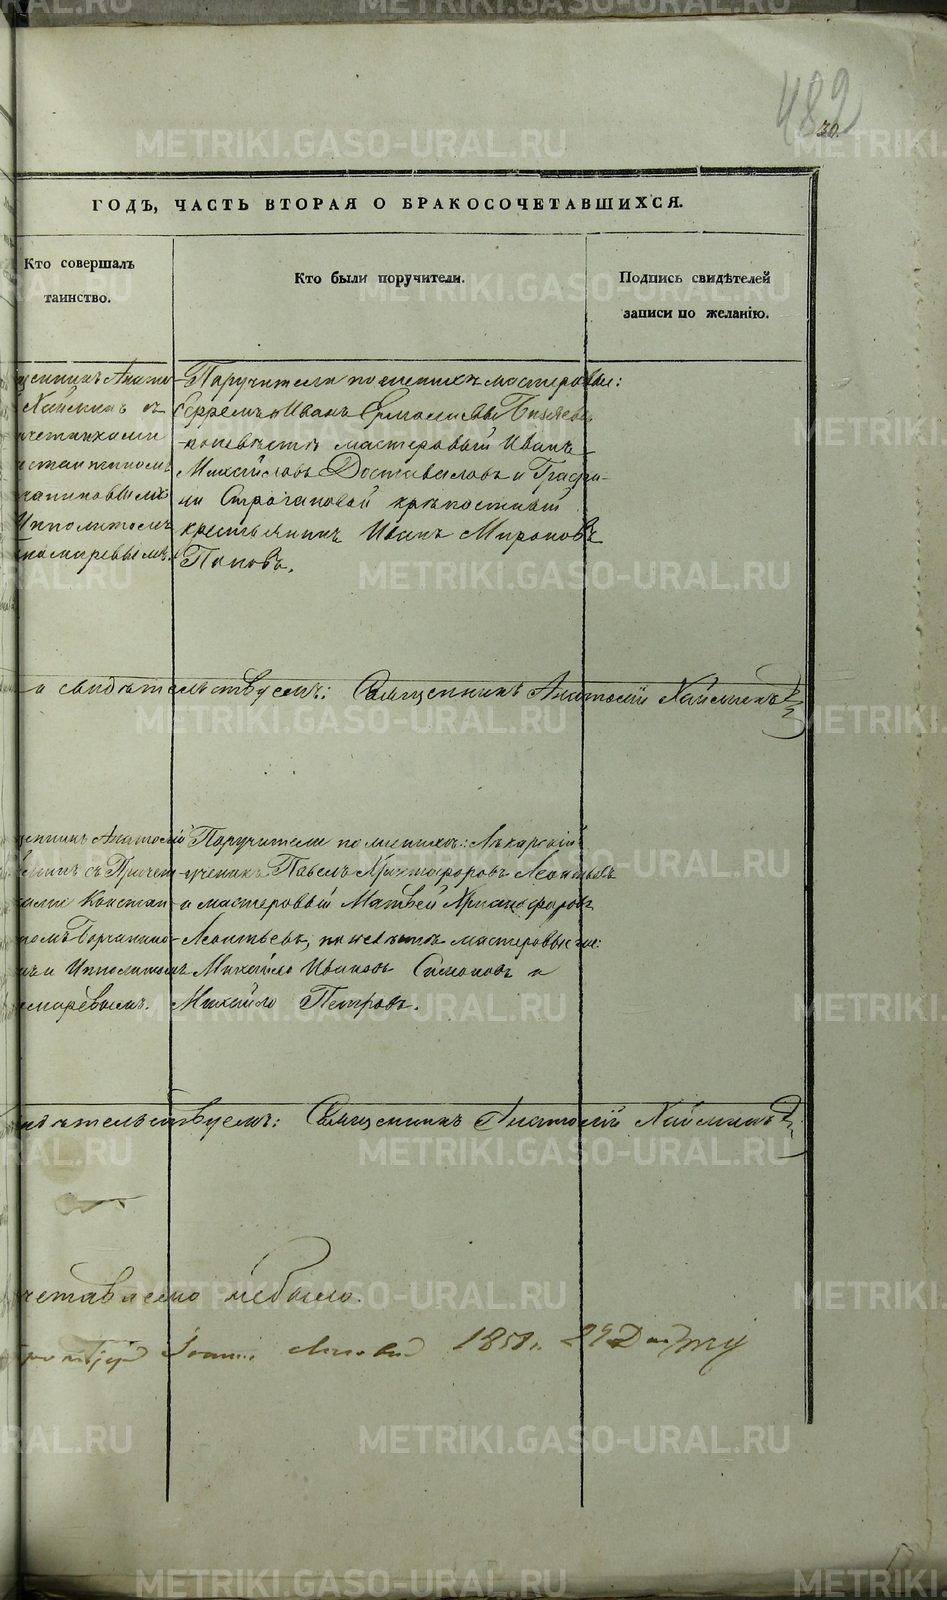 482
30.
ГОДЪ, ЧАСТЬ ВТОРАЯ О БРАКОСОЧЕТАВШИХСЯ.
Кто совершалъ
таинство.
Кто были поручители.
Подпись свидѣтелей
записи по желанію.
щенникъ Анато
Хайминъ съ
причетниками
нстантиномъ
Ипполитомъ
номаревымъ.
Поручители по женихѣ мастеровые:
Ефремъ и Иванъ Ермолаевы
по невѣстѣ мастеровый Иванъ
Михайловъ Достоваловъ и Графи-
ни Строгановой крѣпостной
крестьянинъ Иванъ Мироновъ
Поповъ.
свидѣтельствуемъ: Священникъ Анатолій Хайминъ
щенникъ Анатолій
минъ съ Причет-
ками Констан-
номъ Горчанино-
мъ и Ипполитомъ
омаревымъ.
Поручители по женихѣ: Лѣкарскій
ученикъ Павелъ Христофоровъ Леонтьевъ
и мастеровый Матвѣй Христофоровъ
Леонтьевъ, по невѣстѣ мастеровые:
Михайло Ивановъ Симоновъ и
Михайло Петровъ.
идѣтельствуемъ: Священникъ Анатолій Хайминъ
четавлено небыло.
1858 г.
METRIKI.GASO-URAL.RU